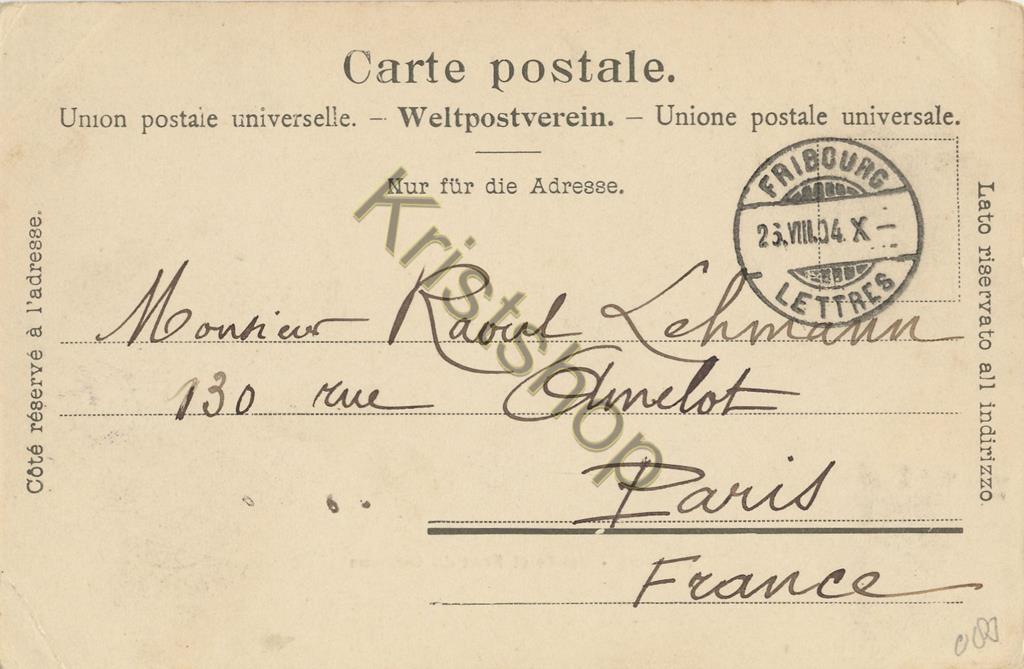 Carte postale.
Union postale universelle. – Weltpostverein. – Unione postale universale.
Nur für die Adresse.
FRIBOURG
LETTRES
Côté réservé à l'adresse.
Lato riservato all indirizzo.
Monsieur Raoul Lehmann
130 rue Amelot
Paris
France
Kristshop